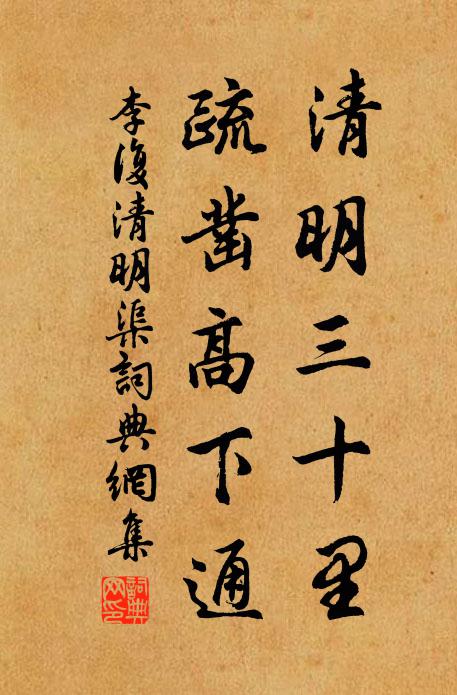 清明三十里
疏凿高下通
李復清明渠詞典網集
詞典網印